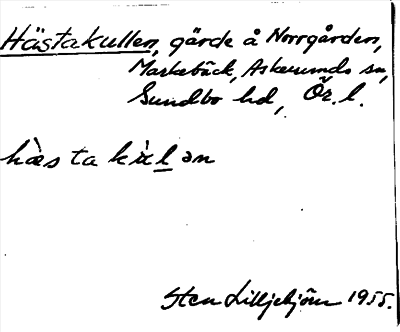 Hästakullen, gärde å Norrgården,
Markebäck, Askersunds sn,
Sundbo hd, Ör. l.
hæ̀s ta kù̀l ən
Sten Lilljebjörn 1955.